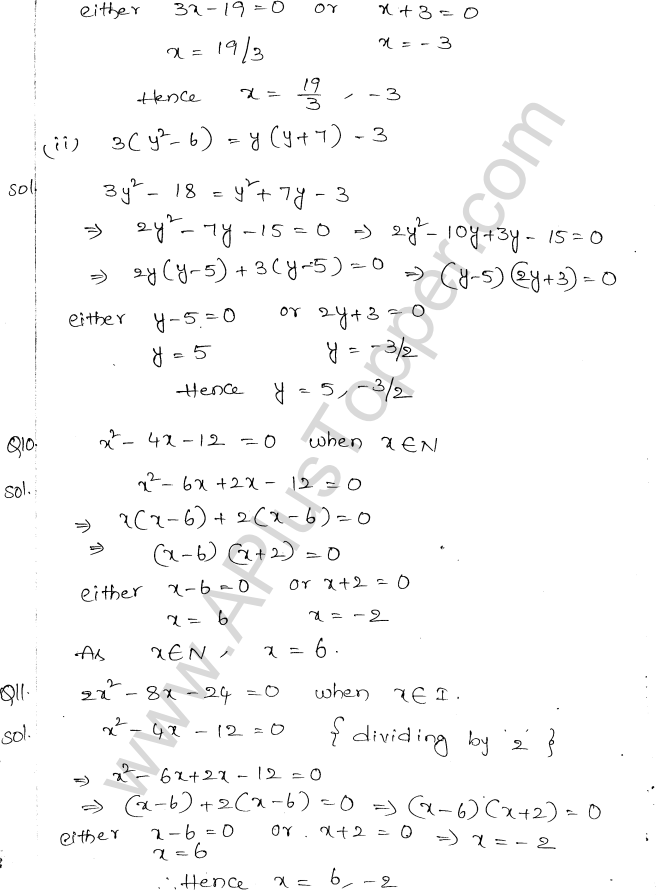 either 3x-19=0 or x+3=0
x = 19/3 x = -3
Hence x = 19/3 , -3
(ii) 3(y²-6) = y(y+7) - 3
Sol. 3y² - 18 = y² + 7y - 3
⇒ 2y² - 7y - 15 = 0 ⇒ 2y² - 10y + 3y - 15 = 0
⇒ 2y(y-5) + 3(y-5) = 0 ⇒ (y-5)(2y+3) = 0
either y-5=0 or 2y+3=0
y = 5 y = -3/2
Hence y = 5, -3/2
Q10. x² - 4x - 12 = 0 when x∈N
Sol. x² - 6x + 2x - 12 = 0
⇒ x(x-6) + 2(x-6) = 0
⇒ (x-6)(x+2) = 0
either x-6=0 or x+2=0
x = 6 x = -2
As x∈N, x = 6.
Q11. 2x² - 8x - 24 = 0 when x∈I.
Sol. x² - 4x - 12 = 0 {dividing by '2'}
⇒ x² - 6x + 2x - 12 = 0
⇒ (x-6) + 2(x-6) = 0 ⇒ (x-6)(x+2) = 0
either x-6=0 or x+2=0 ⇒ x = -2
x = 6
∴ Hence x = 6, -2
www.APlusTopper.com